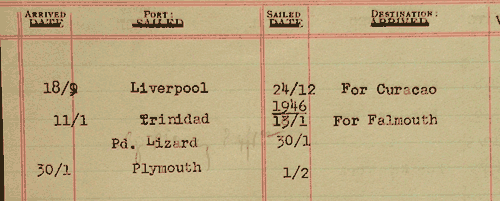 ARRIVED PORT: SAILED DESTINATION:
DATE SAILED DATE ARRIVED
18/9 Liverpool 24/12 For Curacao
1946
11/1 Trinidad 13/1 For Falmouth
Pd. Lizard 30/1
30/1 Plymouth 1/2